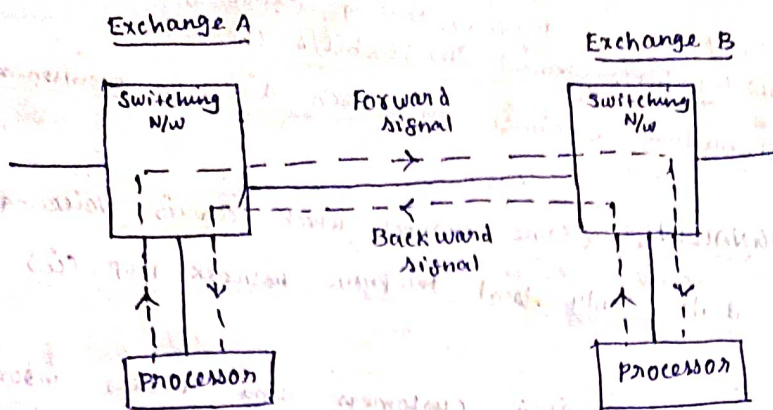 Exchange A
Exchange B
Switching
N/W
Forward
signal
Switching
N/W
Backward
signal
Processor
Processor